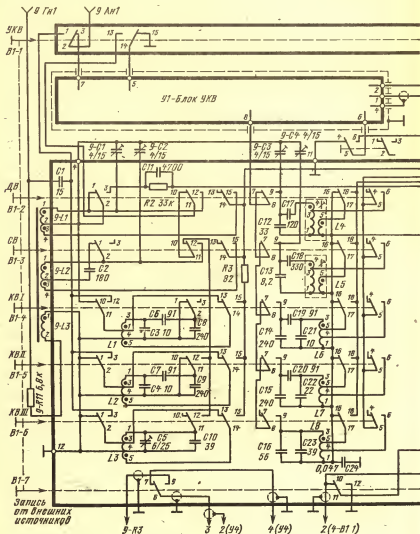 9 Гн1
9 Ан1
УКВ
В1-1
У1-Блок УКВ
9-С1
4/15
9-С2
4/15
9-С3
4/15
9-С4 4/15
С11 4700
С1
15
ДВ
В1-2
9-L1
R2 33к
С12
33
С17
120
L4
СВ
В1-3
9-L2
С2
180
R3
82
С13
8,2
С18
330
L5
КВI
В1-4
9-L3
С6 91
С3 10
С8
240
L1
С14
240
С19 91
С21
10
L6
КВII
В1-5
С7 91
С4 10
С9
240
L2
С15
240
С20 91
С22
22
L7
КВIII
В1-6
С5
6/25
С10
39
L3
С16
56
L8
С23
39
0,047
С24
В1-7
Запись
от внешних
источников
9-К3
3
2(У4)
4(У4)
2(4-В1 1)